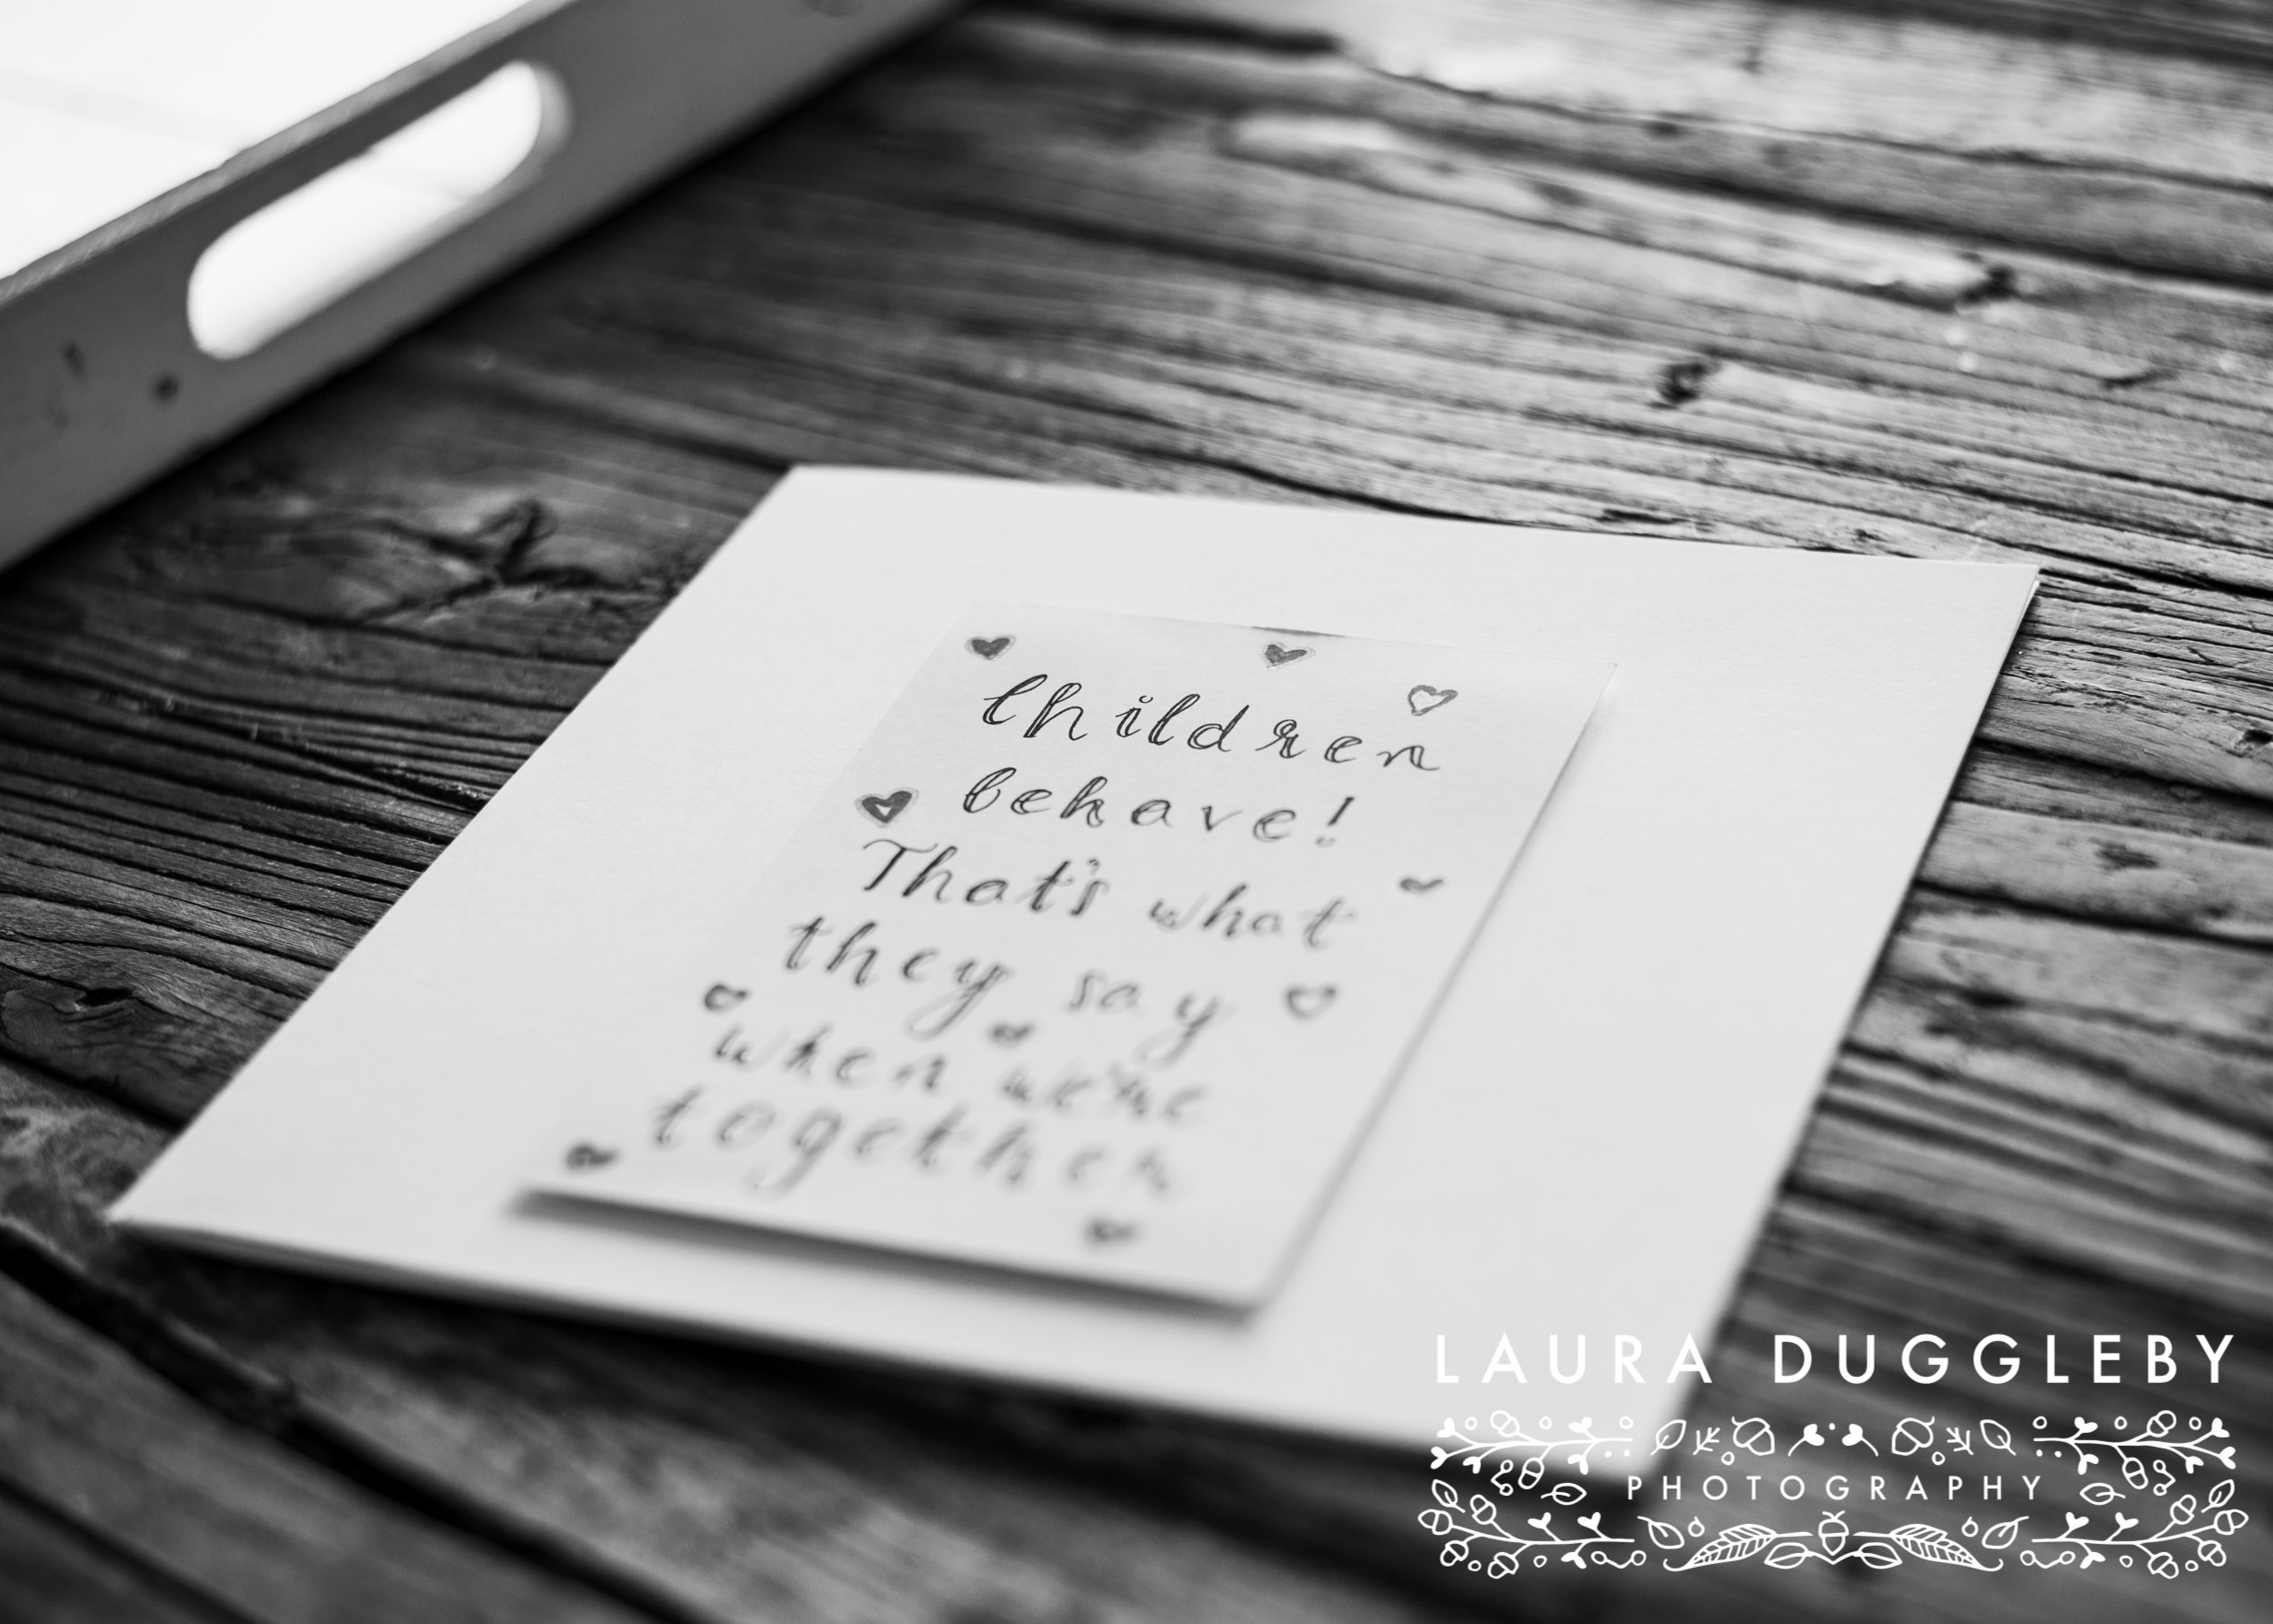 Children
behave!
That's what
they say
when we're
together
LAURA DUGGLEBY
PHOTOGRAPHY